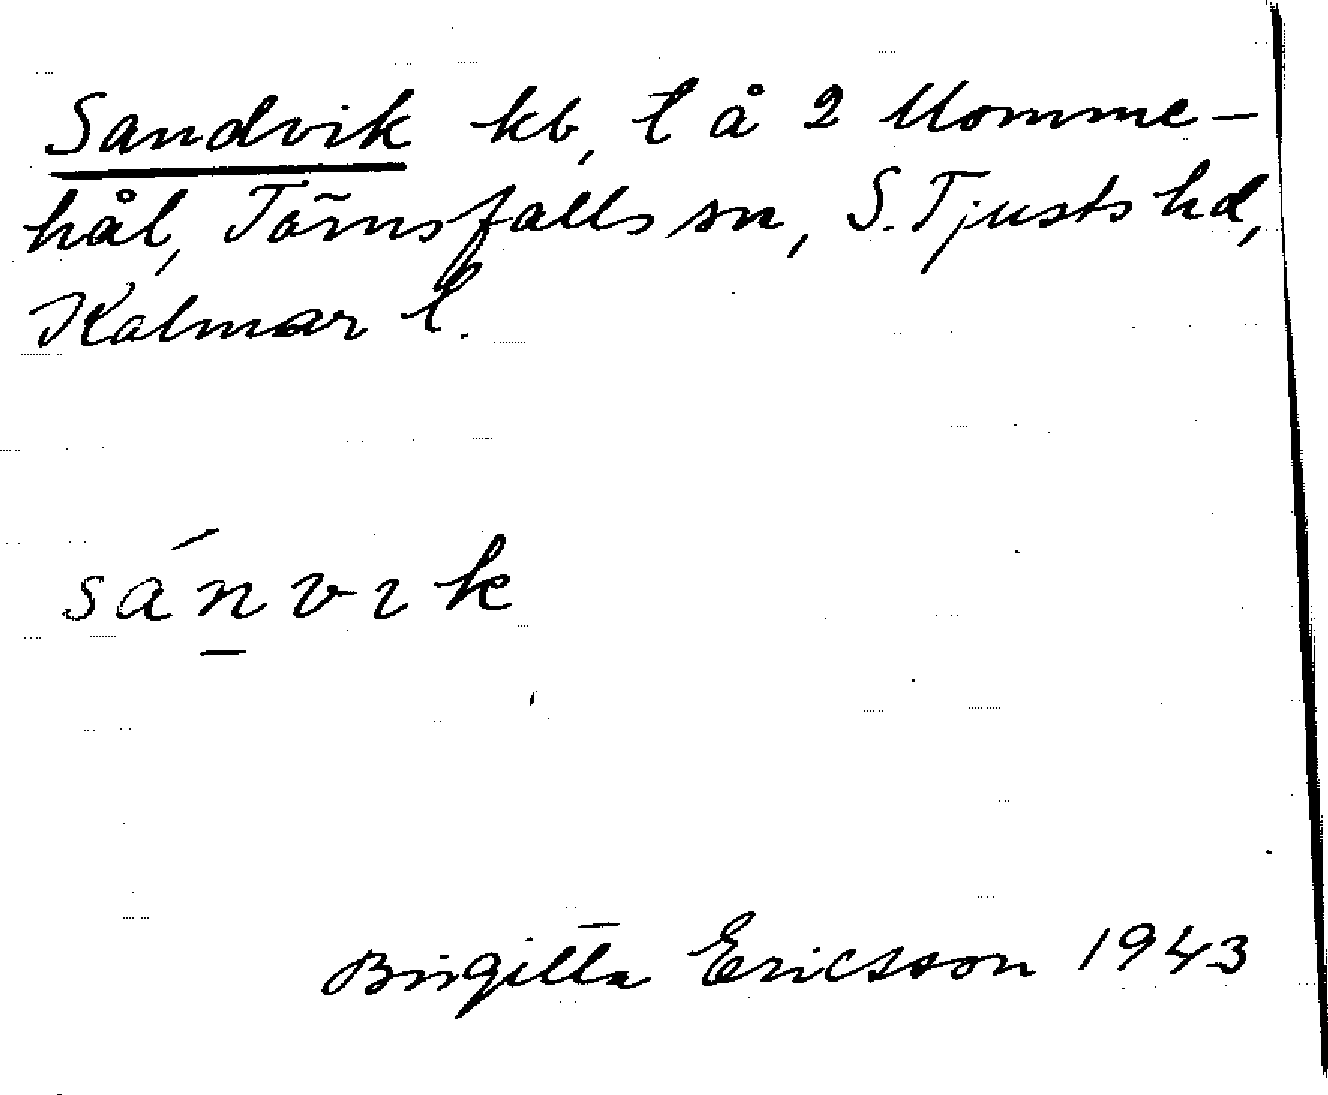 Sandvik kb, l å 2 Momme-
hål, Törnsfalls sn, S. Tjusts hd,
Kalmar l.
sánvık
Birgitta Ericsson 1943